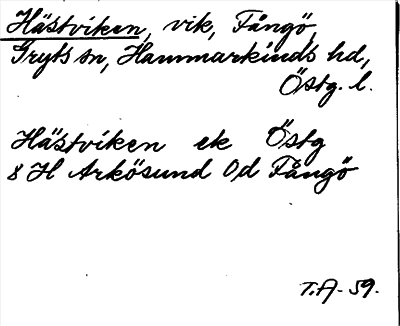 Hästviken, vik, Fångö,
Gryts sn, Hammarkinds hd,
Östg. l.
Hästviken ek Östg
8 H Arkösund 0d Fångö
T.A. 59.